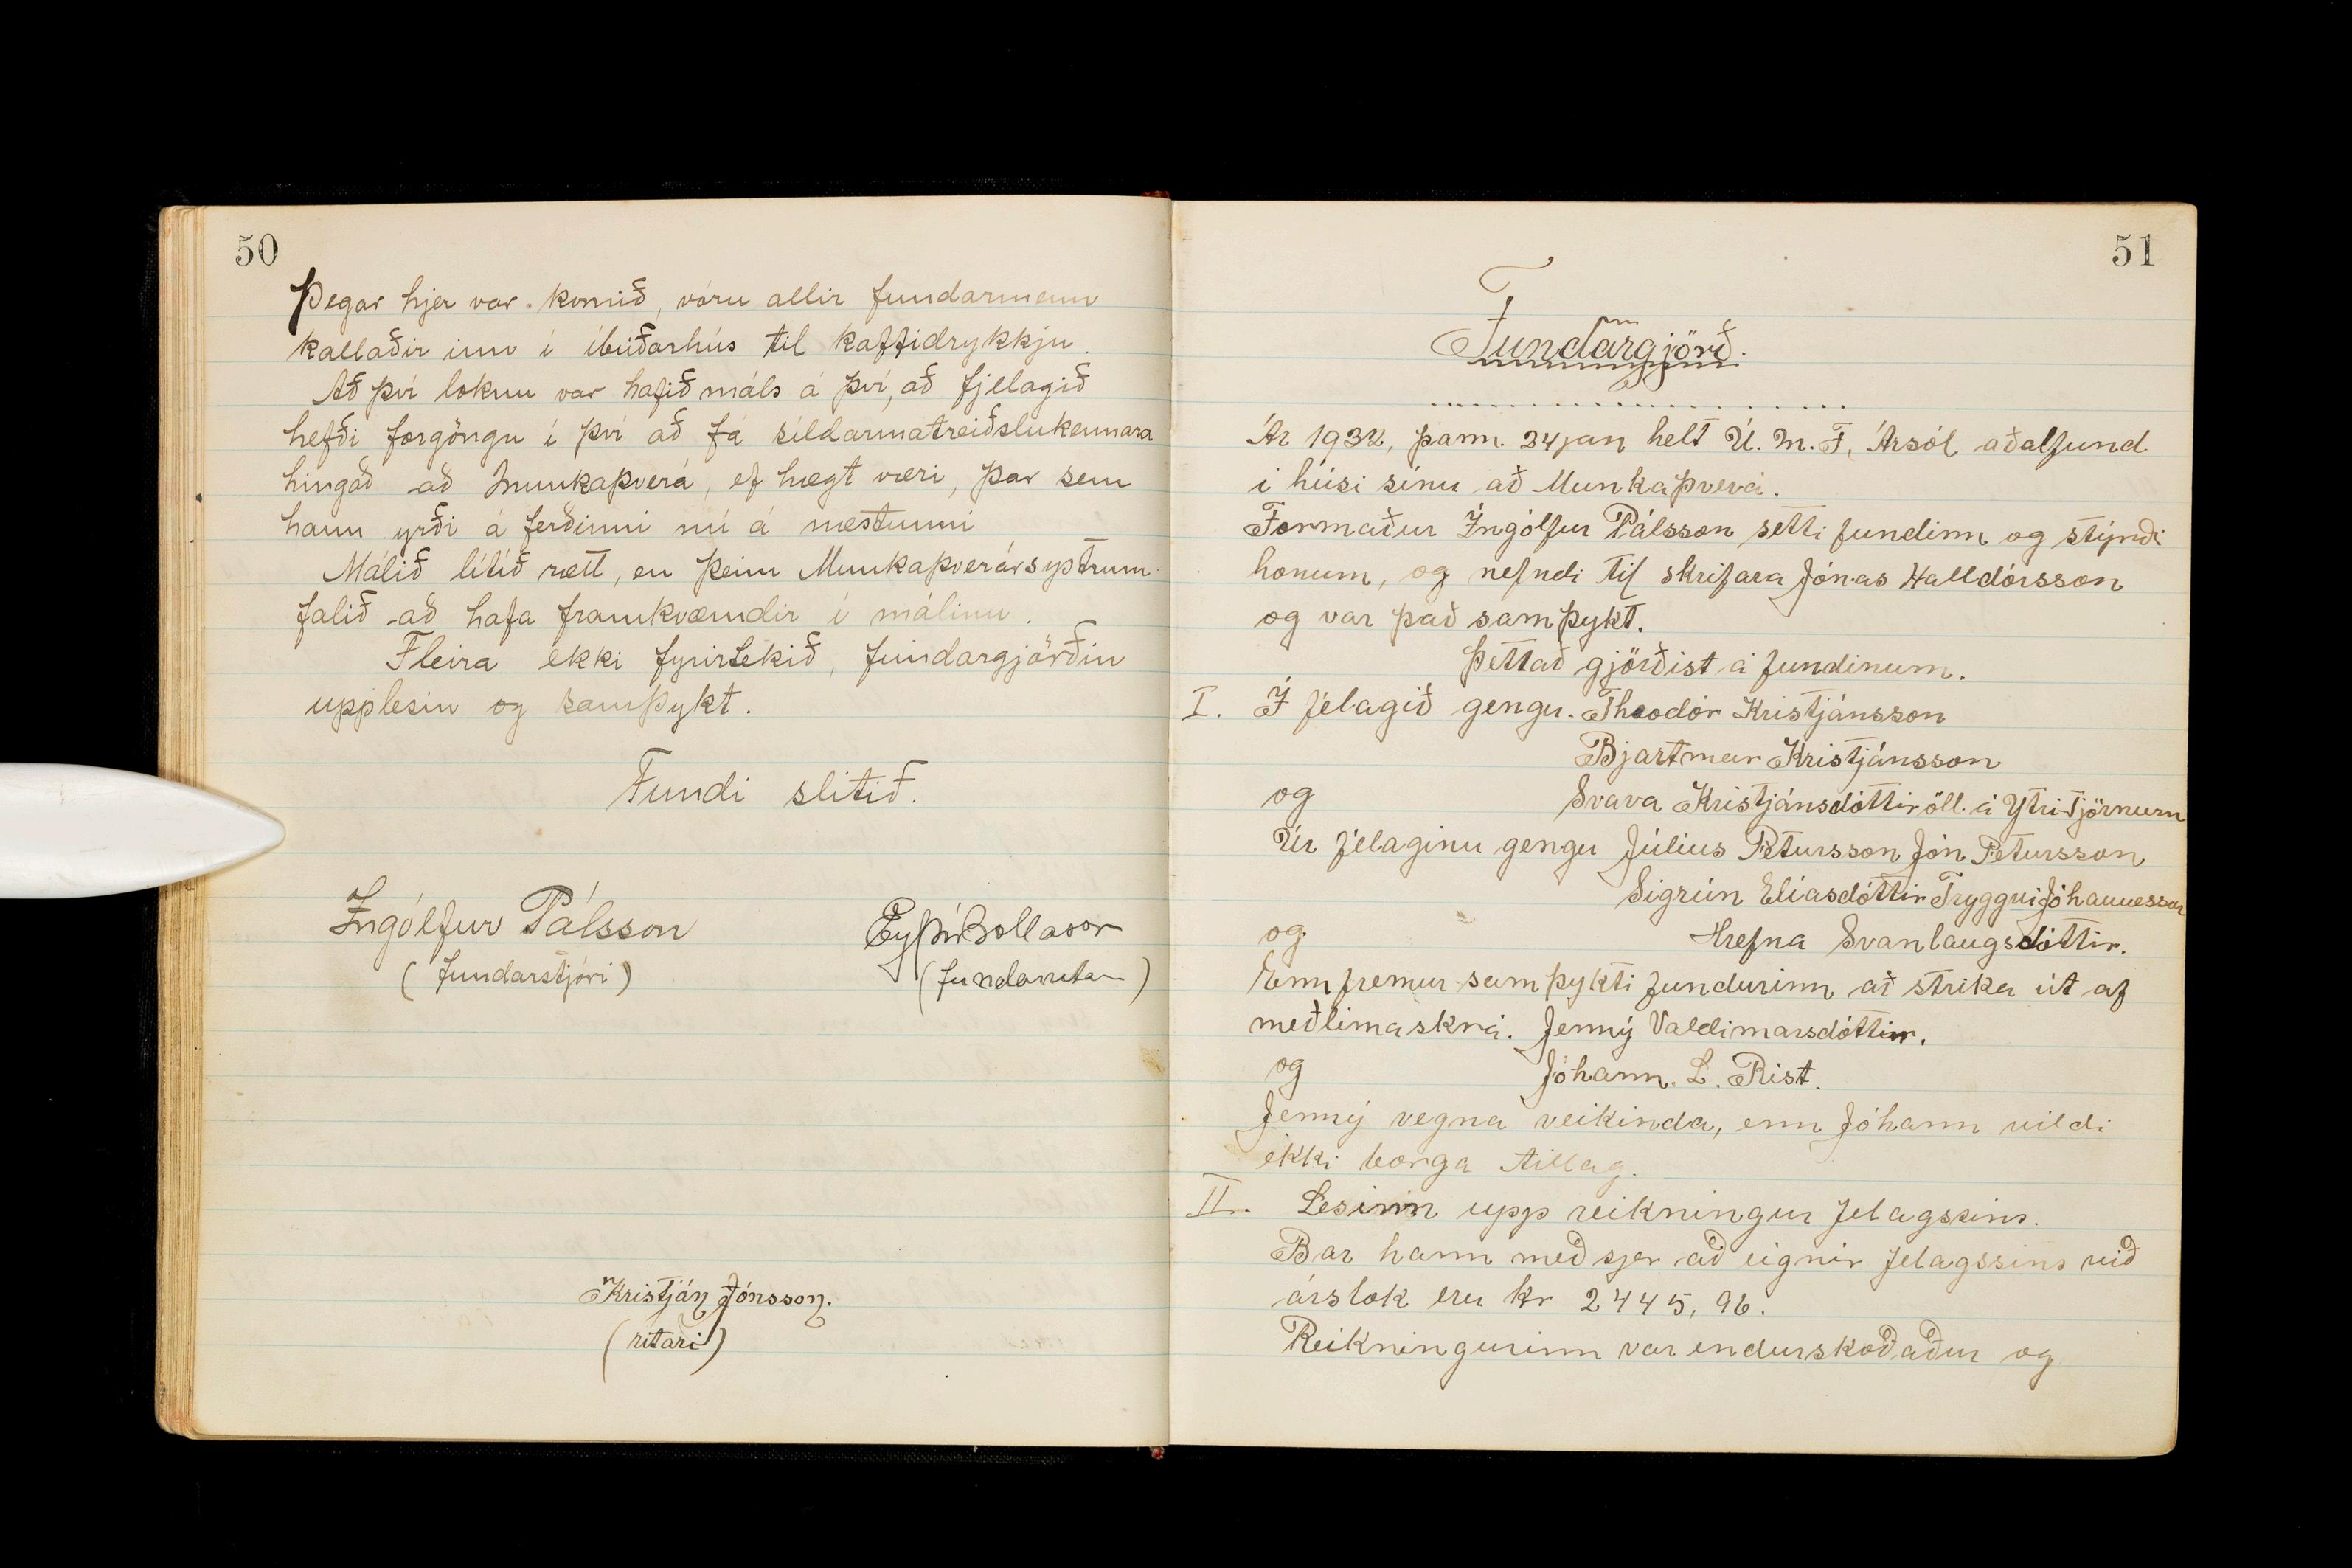 50
Þegar hjer var komið, vóru allir fundarmenn
kallaðir inn í íbúðarhús til kaffidrykkju.
Að því loknu var hafið máls á því, að fjelagið
hefði forgöngu í því að fá síldarmatreiðslukennara
hingað að Munkaþverá, ef hægt væri, þar sem
hann yrði á ferðinni nú á næstunni
Málið lítið rætt, en þeim Munkaþverársystrum
falið að hafa framkvæmdir í málinu.
Fleira ekki fyrirtekið, fundargjörðin
upplesin og samþykt.
Fundi slitið.
Ingólfur Pálsson
(fundarstjóri)
(fundarrita)
Kristján Jónsson.
(ritari)
51
Fundargjörð.
Ár 1932, þann. 24 jan helt U. M. F. Ársól aðalfund
í húsi sínu að Munkaþverá.
Formaður Ingólfur Pálsson setti fundinn og stýrði
honum, og nefndi til skrifara Jónas Halldórsson
og var það samþykt.
Þettað gjörðist á fundinum.
I. Í félagið gengu. Theodór Kristjánsson
Bjartmar Kristjánsson
og Svava Kristjánsdóttir öll. á Ytri Tjörnum
Úr félaginu gengu Júlíus Pétursson Jón Pétursson
Sigrún Elíasdóttir Tryggvi Jóhannesson
og Hrefna Svanlaugsdóttir.
Enn fremur samþykti fundurinn að strika út af
meðlimaskrá. Jenný Valdimarsdóttir.
og Jóhann. L. Rist.
Jenný vegna veikinda, enn Jóhann vildi
ekki borga tillag.
II. Lesinn upp reikningur felagssins.
Bar hann með sjer að eignir felagssins við
árslok eru kr 2445,96.
Reikningurinn var endurskoðaður og